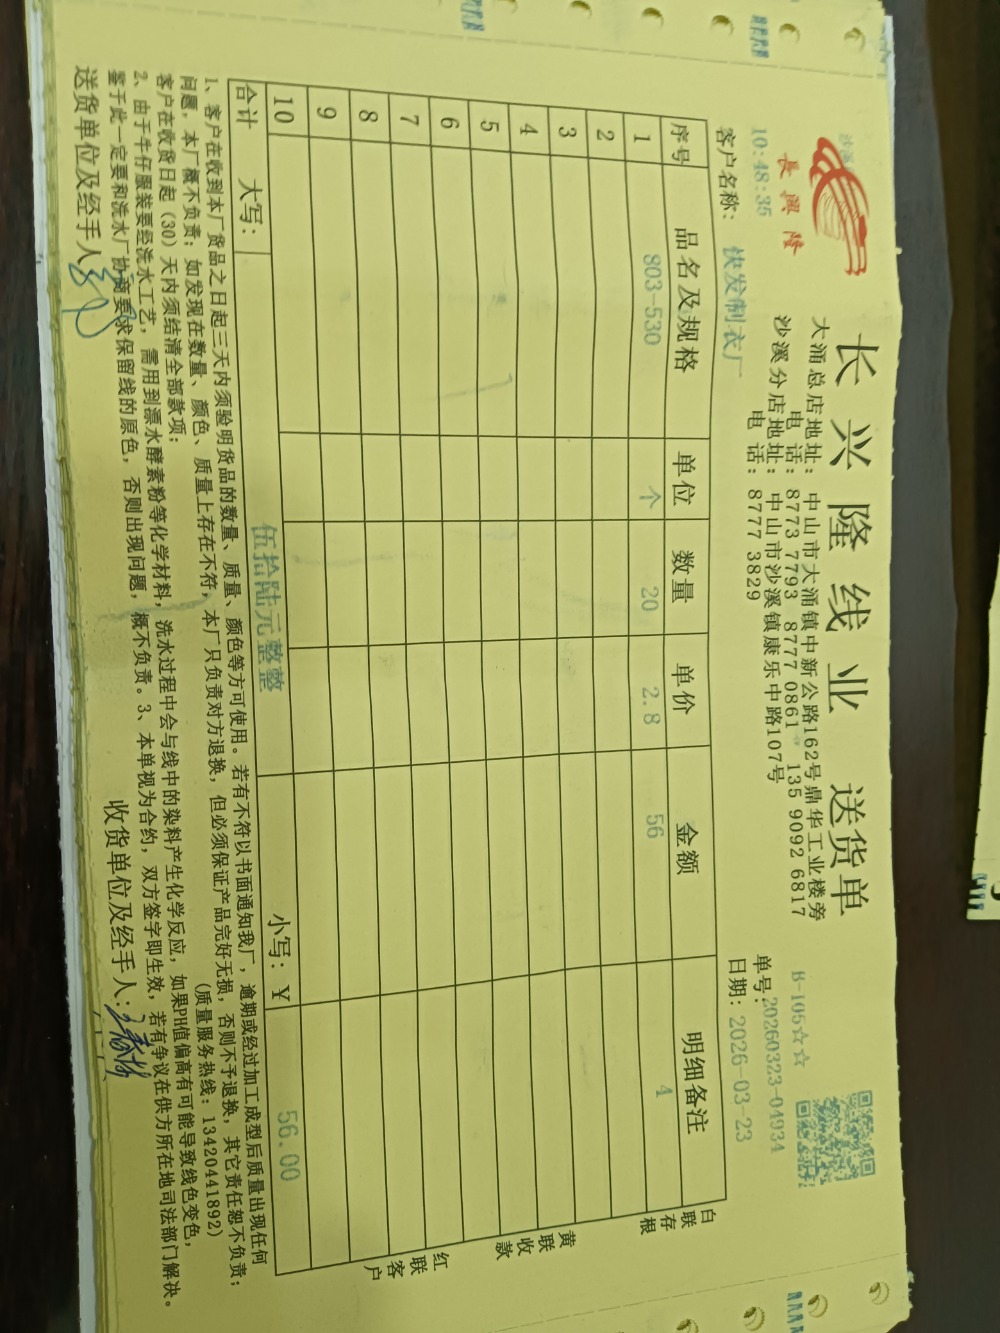 長興隆
沙溪
长兴隆线业 送货单
大涌总店地址：中山市大涌镇中新公路162号鼎华工业楼旁
电 话：8773 7793 8777 0861 135 9092 6817
沙溪分店地址：中山市沙溪镇康乐中路107号
电 话：8777 3829
B-105☆☆
10:48:35
单号：20260323-04934
客户名称：快发制衣厂
日期：2026-03-23
序号 品名及规格 单位 数量 单价 金额 明细备注
1 803-530 个 20 2.8 56 4
2
3
4
5
6
7
8
9
10
合计 大写：伍拾陆元整整 小写：¥ 56.00
白联存根
黄联收款
红联客户
1、客户在收到本厂货品之日起三天内须验明货品的数量、质量、颜色等方可使用。若有不符以书面通知我厂，逾期或经过加工成型后质量出现任何
问题，本厂概不负责；如发现在数量、颜色、质量上存在不符，本厂只负责对方退换，但必须保证产品完好无损，否则不予退换，其它责任恕不负责；
客户在收货日起（30）天内须结清全部款项；（质量服务热线：13420441892）
2、由于牛仔服装要经洗水工艺，需用到漂水酵素粉等化学材料，洗水过程中会与线中的染料产生化学反应，如果PH值偏高有可能导致线色变色，
鉴于此一定要和洗水厂协商要求保留线的原色，否则出现问题，概不负责。3、本单视为合约，双方签字即生效，若有争议在供方所在地司法部门解决。
送货单位及经手人： 收货单位及经手人：